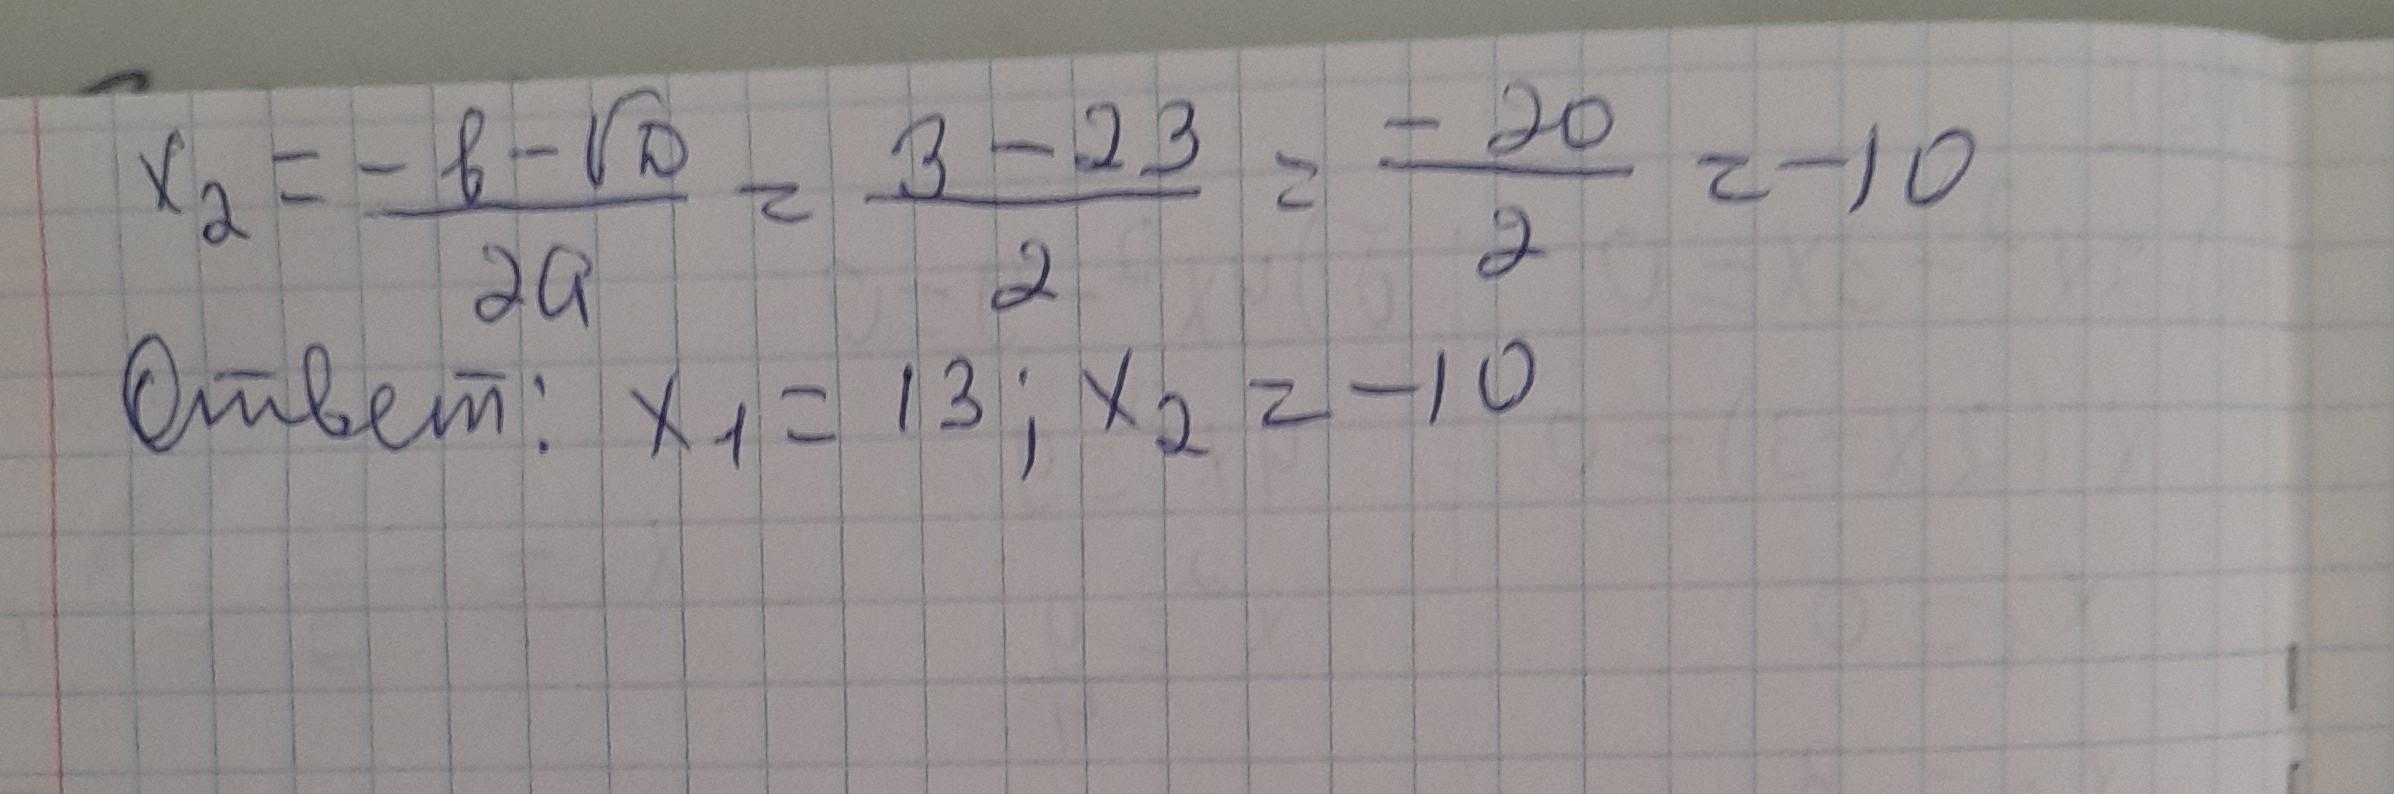 x₂ = (-b-√D)/(2a) = (3-23)/2 = (-20)/2 = -10
Ответ: x₁ = 13; x₂ = -10